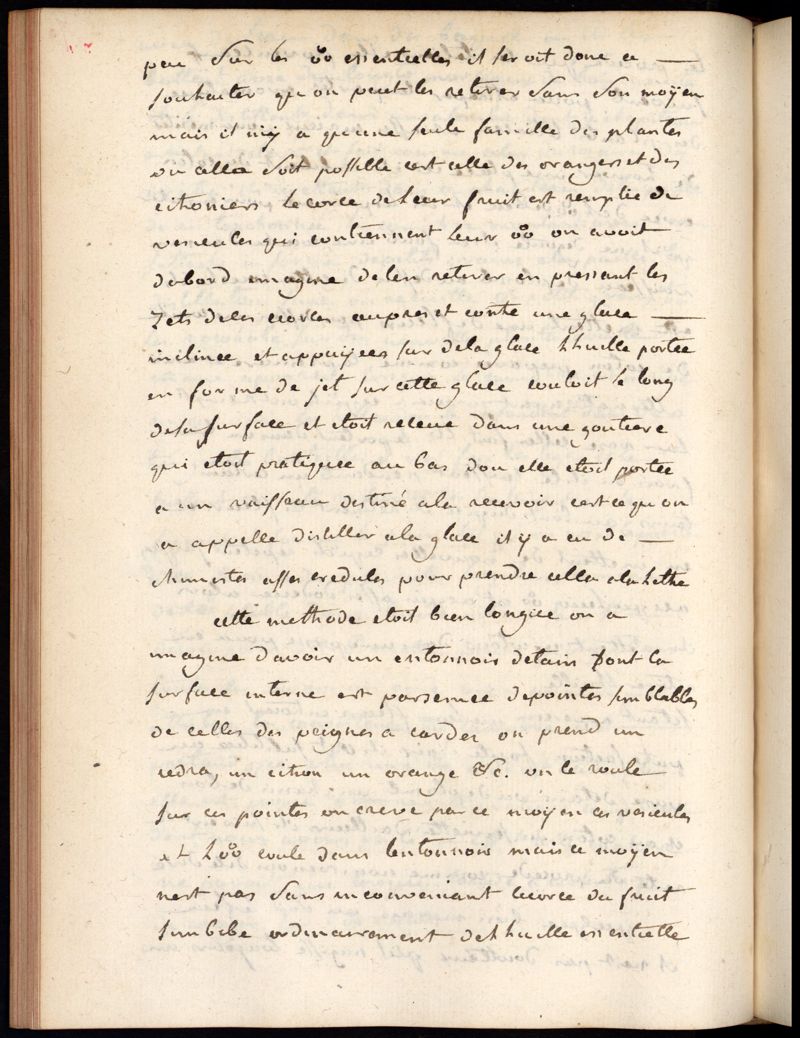 peu Sur les o°o essentielles il seroit donc a —
souhaiter qu on peut les retirer Sans Son moÿen
mais il n'iÿ a qu'une seule famille des plantes
ou cella Soit possible cest celle des orangers et des
citroniers lecorce de Leur fruit est remplie de
vesicules qui contiennent Leur o°o on avoit
dabord imagine de len retirer en pressant les
Zets de les ecorces aupres et contre une glace —
inclinee et appuÿees sur de la glace Lhuille portee
en forme de jet sur cette glace couloit le long
de sa surface et etoit recue dans une goutiere
qui etoit pratiquee au bas dou elle etoit portee
a un vaisseau destiné a la recevoir cest ce qu on
a appelle distiller a la glace il ÿ a eu de —
chimistes asses credules pour prendre cella a la Lettre
cette methode etoit bien longue on a
imagine davoir un entonnois detain Dont la
surface interne est parsemee de pointes semblables
de celles des peignes a carder on prend un
cedra, un citron un orange &c. on le roule
sur ces pointes on creve par ce moÿen ces vesicules
et L o°o coule dans lentonnois mais ce moÿen
nest pas Sans inconveniant lecorce du fruit
simbibe ordinairement de Lhuille essentielle